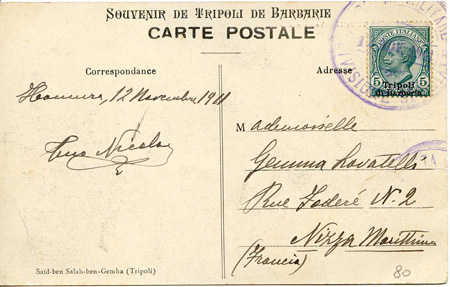 Souvenir de Tripoli de Barbarie
CARTE POSTALE
Correspondance
Adresse
POSTE ITALIANE
5 5
Tripoli
di Barberia
12 Novembre 1911
Tuo Nicola
Mademoiselle
Gemma Rovatelli
Rue Foderé N. 2
Nizza Marittima
(Francia)
Saïd-ben Salah-ben-Gemha (Tripoli)
80